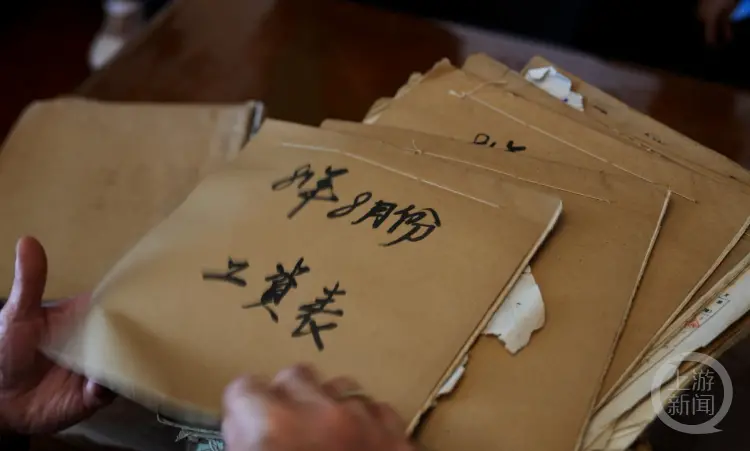 81年8月份
工资表
上游
新闻